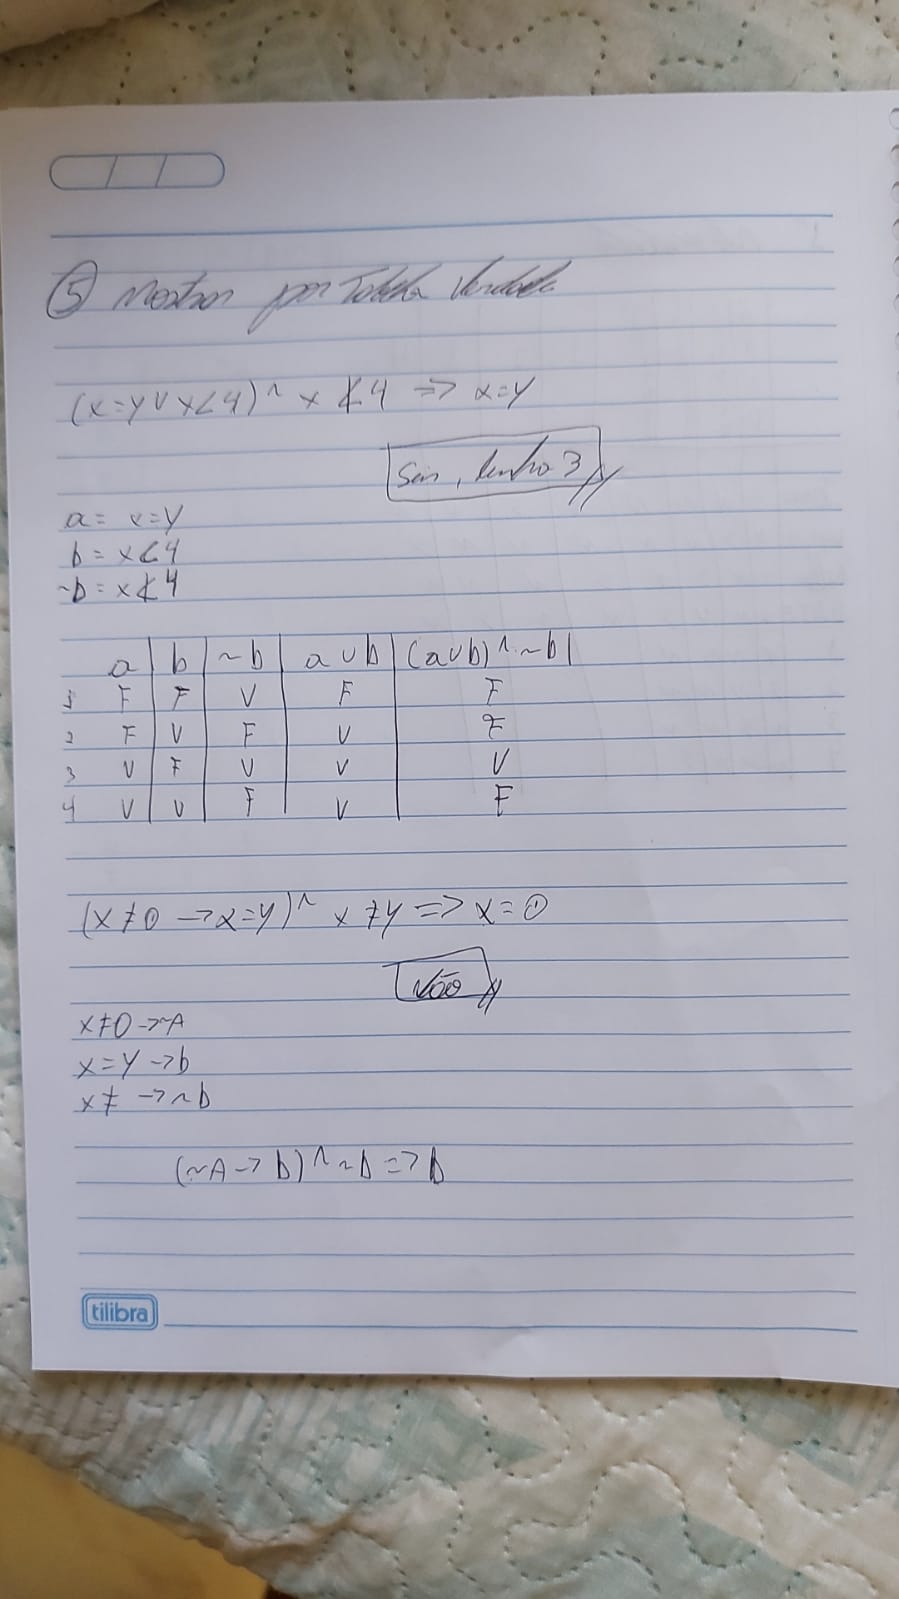 5 Mostrar por Tabela Verdade
(x=y ∨ x<4) ^ x ≮ 4 => x=y
Sim, linha 3
a = x=y
b = x<4
~b = x≮4
a b ~b a ∪ b (a∪b) ^ ~b
1 F F V F F
2 F V F V F
3 V F V V V
4 V V F V F
(x≠0 -> x=y) ^ x≠y => x=0
Não
x≠0 -> ~A
x=y -> b
x≠ -> ~b
(~A -> b) ^ ~b => b
tilibra